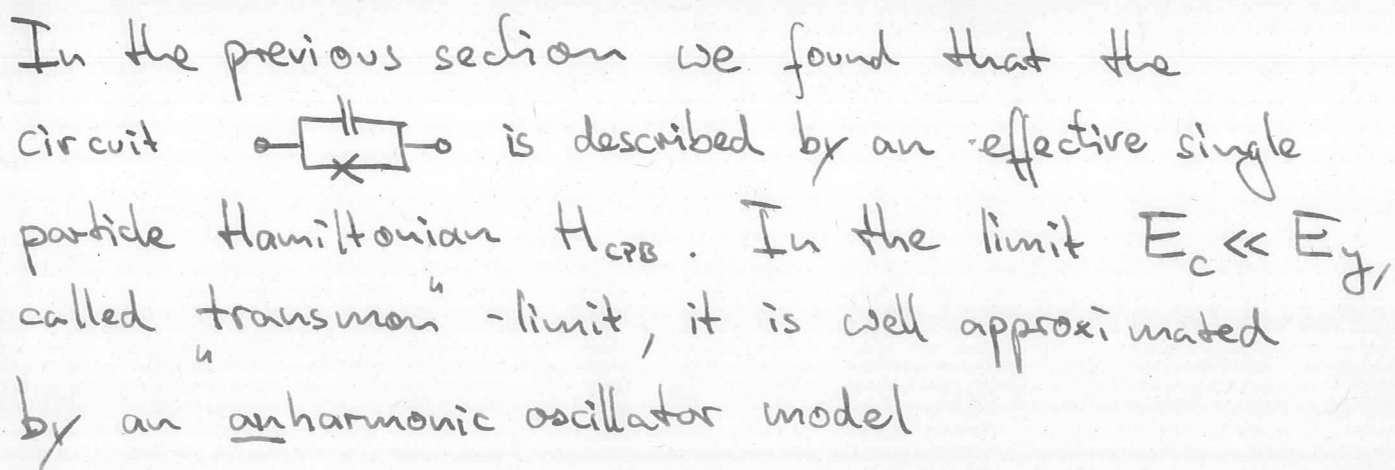 In the previous section we found that the
circuit is described by an effective single
particle Hamiltonian H_CPB. In the limit E_c << E_J,
called "transmon"-limit, it is well approximated
by an anharmonic oscillator model